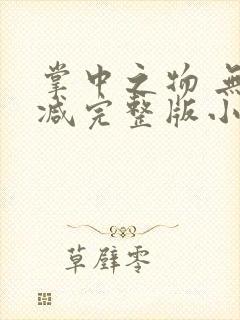 掌中之物 無
减完整版小
草壁零